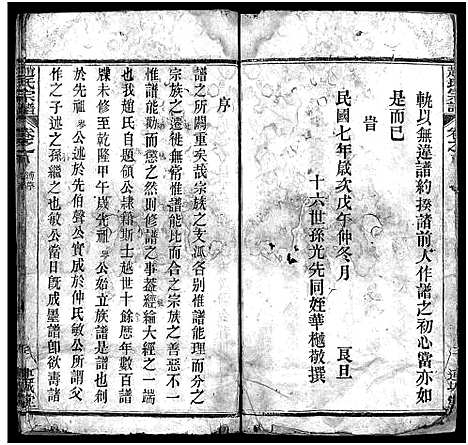 軌以無違譜約揆諸前人作譜之初心當亦如
是而已
旹
民國七年歲次戊午仲冬月 良旦
十六世孫光先同姪華樾敬撰
序
譜之所關重矣哉宗族之文派各別惟譜能理而分之
宗族之遷徙無常惟譜能比而合之宗族之善惡不一
惟譜能勸而懲之然則修譜之事蓋經綸大經之一端
也我趙氏自題領公隸籍斯土越世十餘歷年數百譜
牒未修至乾隆甲午歲先祖 公始立族譜是譜也創
作之 公述於先伯聲公實成於仲氏敏公所謂父
作之子述之孫繼之也敏公當日既成墨譜卽欲壽諸
趙氏宗譜